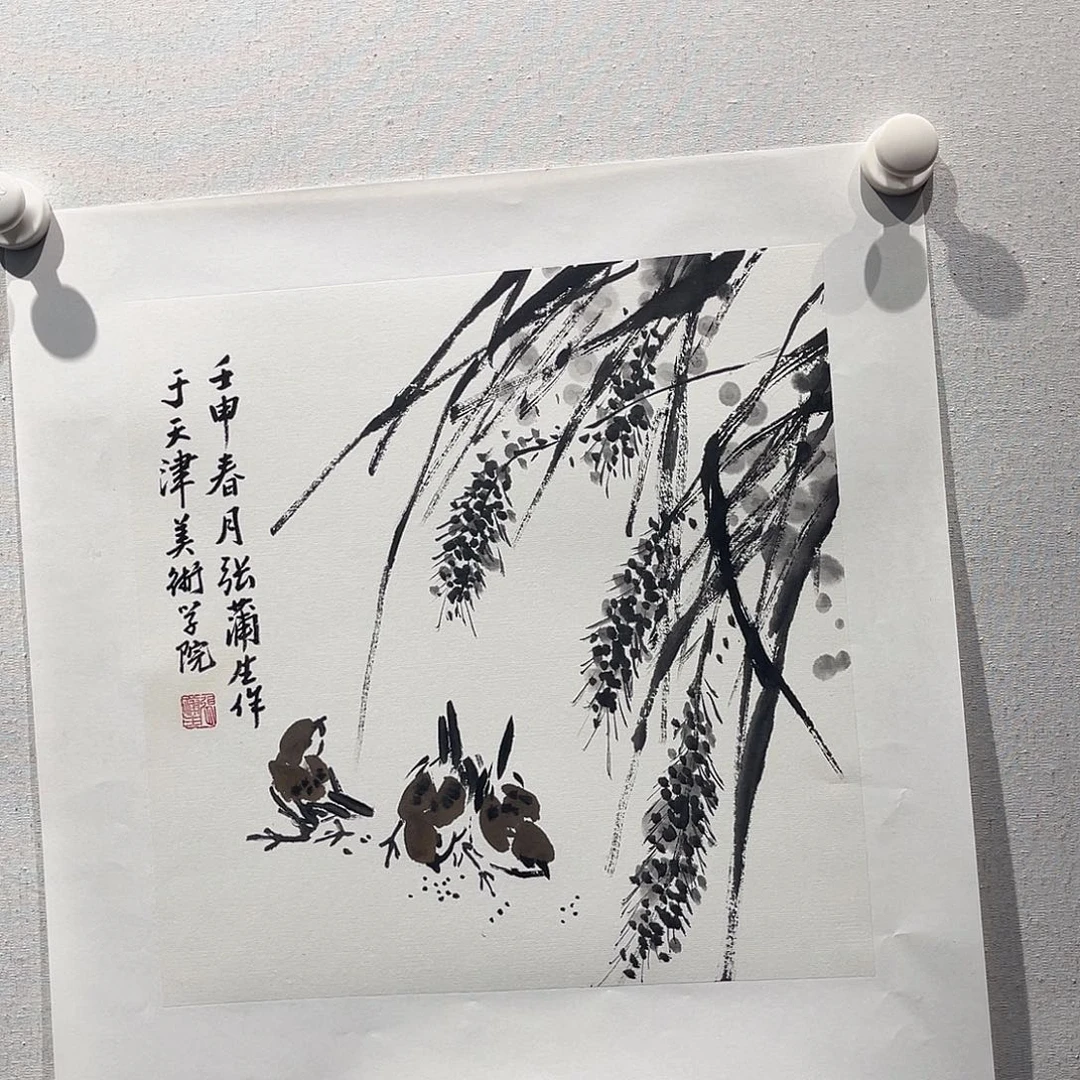 壬申春月张蒲生作
于天津美術学院